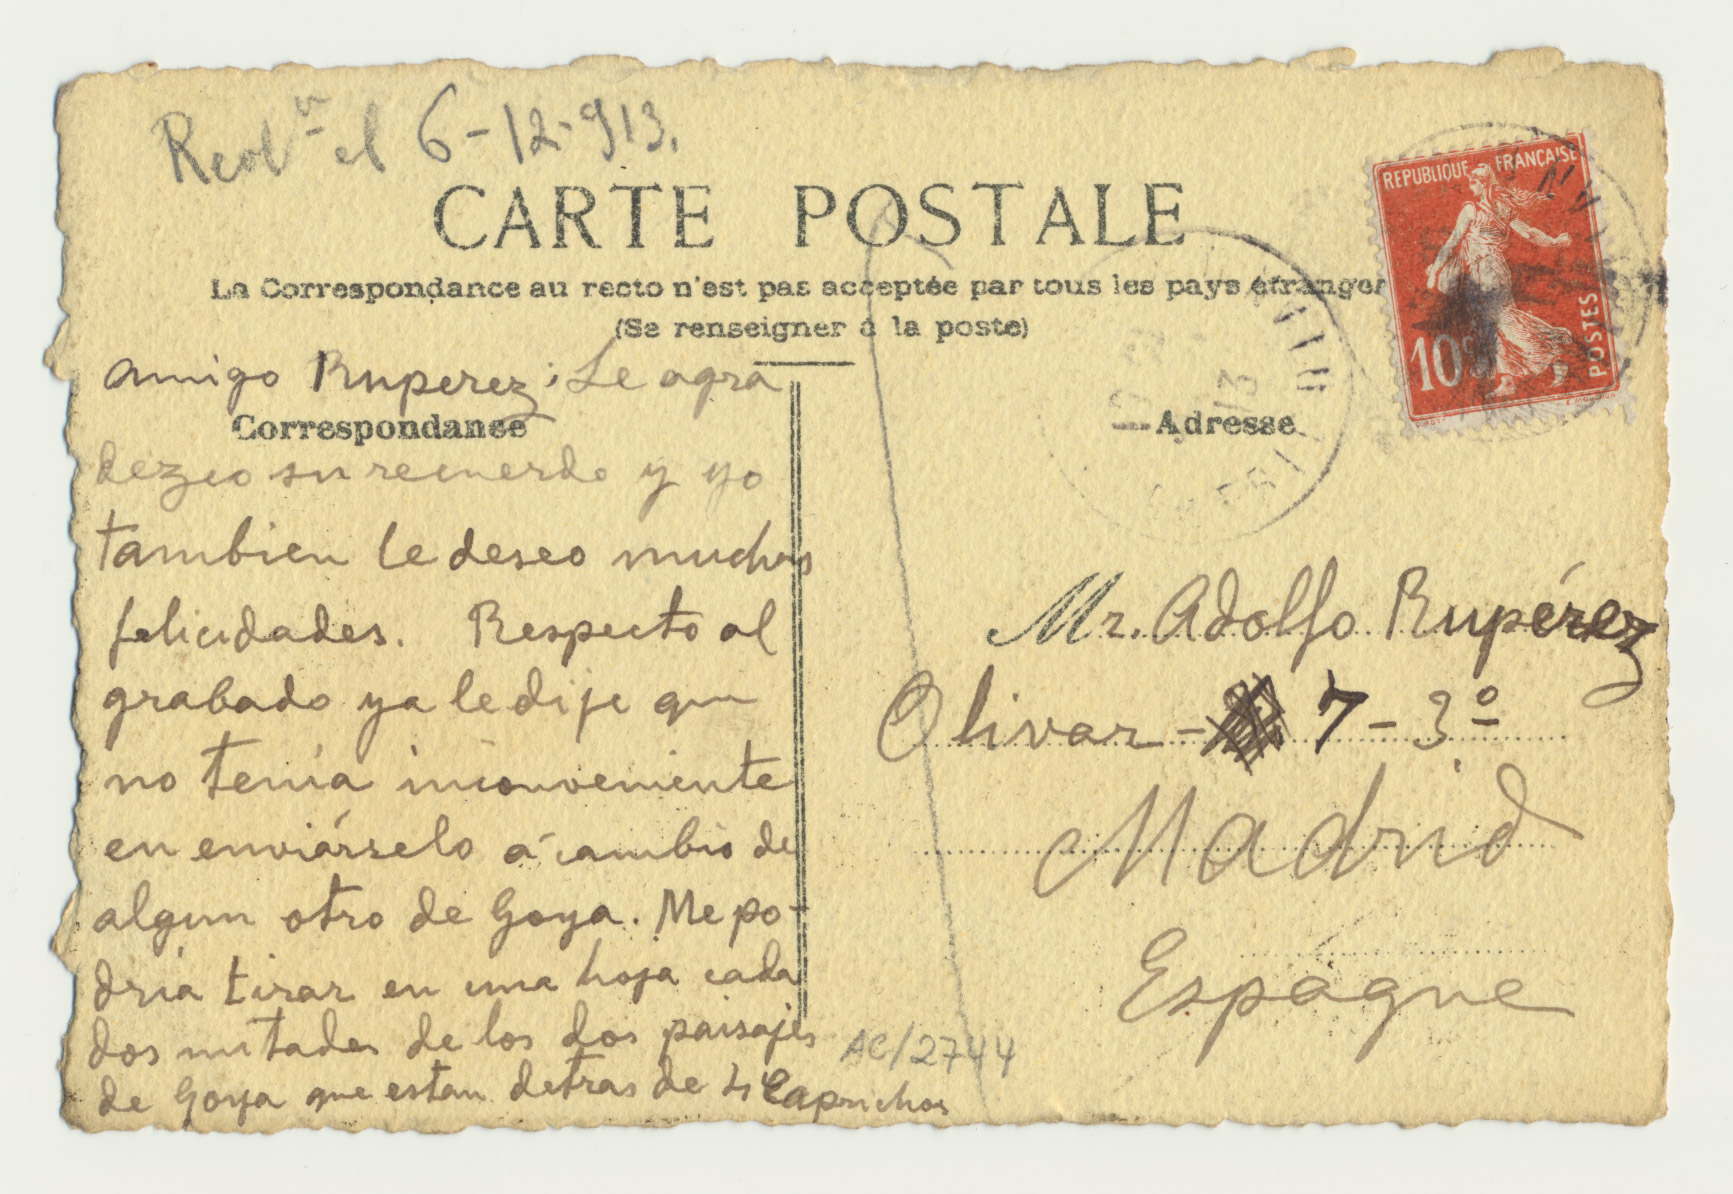 el 6-12-913.
CARTE POSTALE
La Correspondance au recto n'est pas acceptée par tous les pays étranger
(Se renseigner à la poste)
REPUBLIQUE FRANÇAISE
10c
POSTES
amigo Ruperez; Le agra
Correspondance
dezco su recuerdo y yo
tambien le deseo muchas
felicidades. Respecto al
grabado ya le dije que
no tenía inconveniente
en enviárselo á cambio de
algun otro de Goya. Me po-
dría tirar en una hoja cada
dos mitades de los dos paisajes
de Goya que estan detras de 4 Caprichos
Adresse
Mr. Adolfo Rupérez
Olivar - 7 - 3º
Madrid
Espagne
AC/2744